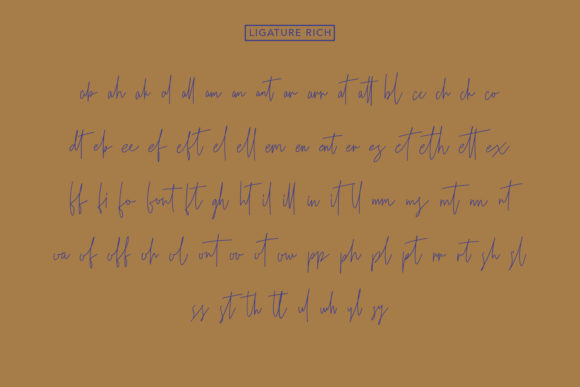 LIGATURE RICH
ap ah ak al all am an ant ar arr at att bl ce ch ck co
dt eb ee ef eft el ell em en ent er es ct eth ett ex
ff fi fo font ft gh ht il ill in it tl mm my mt nn nt
oa of off oh ol ont oo ot ow pp ph pl pt rr rt sh sl
ss st th tt ul wh yl sy